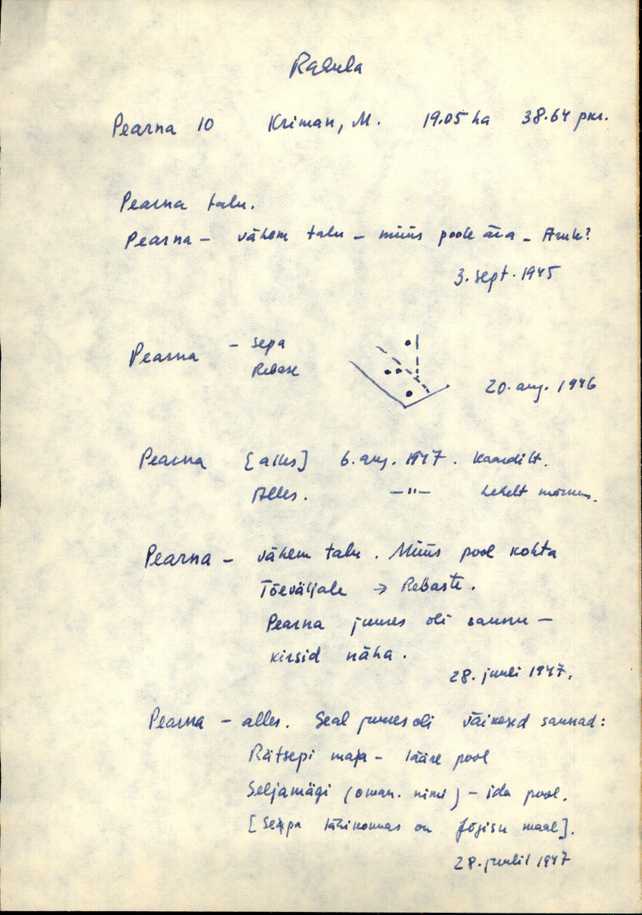 Rabula
Pearna 10 Kriman, M. 19.05 ha 38.64 pkr.
Pearna talu.
Pearna – vähem talu – müüs poole ära –
3. sept. 1945
Pearna – Sepa
Rebase
20. aug. 1946
Pearna [alles] 6. aug. 1947. Kaardilt.
Alles. –"– lehelt
Pearna – vähem talu. Müüs pool kohta
Tõeväljale → Rebaste.
Pearna juures oli saunu –
kirsid näha.
28. juuli 1947.
Pearna – alles. Seal juures oli väikesed saunad:
Rätsepi maja – lääne pool
Seljamägi (oman. nimi) – ida pool.
[Seppa lähikonnas on Jõgisu maal].
28. juulil 1947